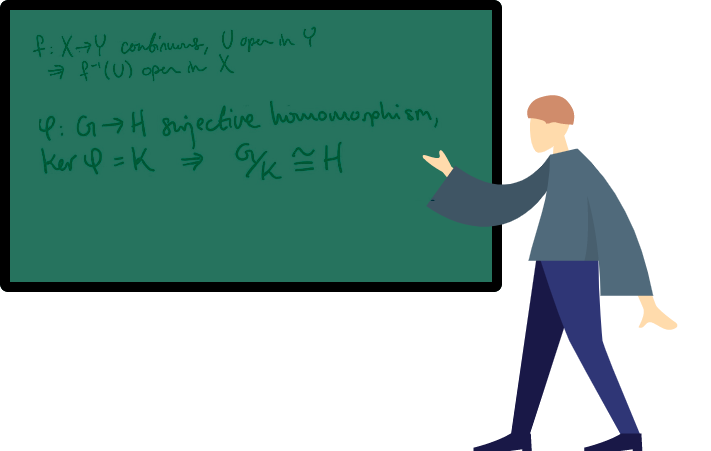 f: X → Y continuous, U open in Y
⇒ f⁻¹(U) open in X
φ: G → H surjective homomorphism,
ker φ = K ⇒ G/K ≅ H